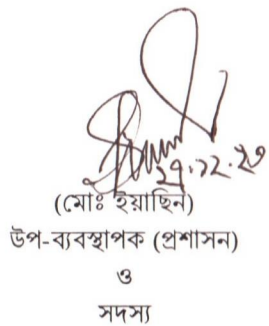 ২৭.১২.২৩
(মোঃ ইয়াছিন)
উপ-ব্যবস্থাপক (প্রশাসন)
ও
সদস্য